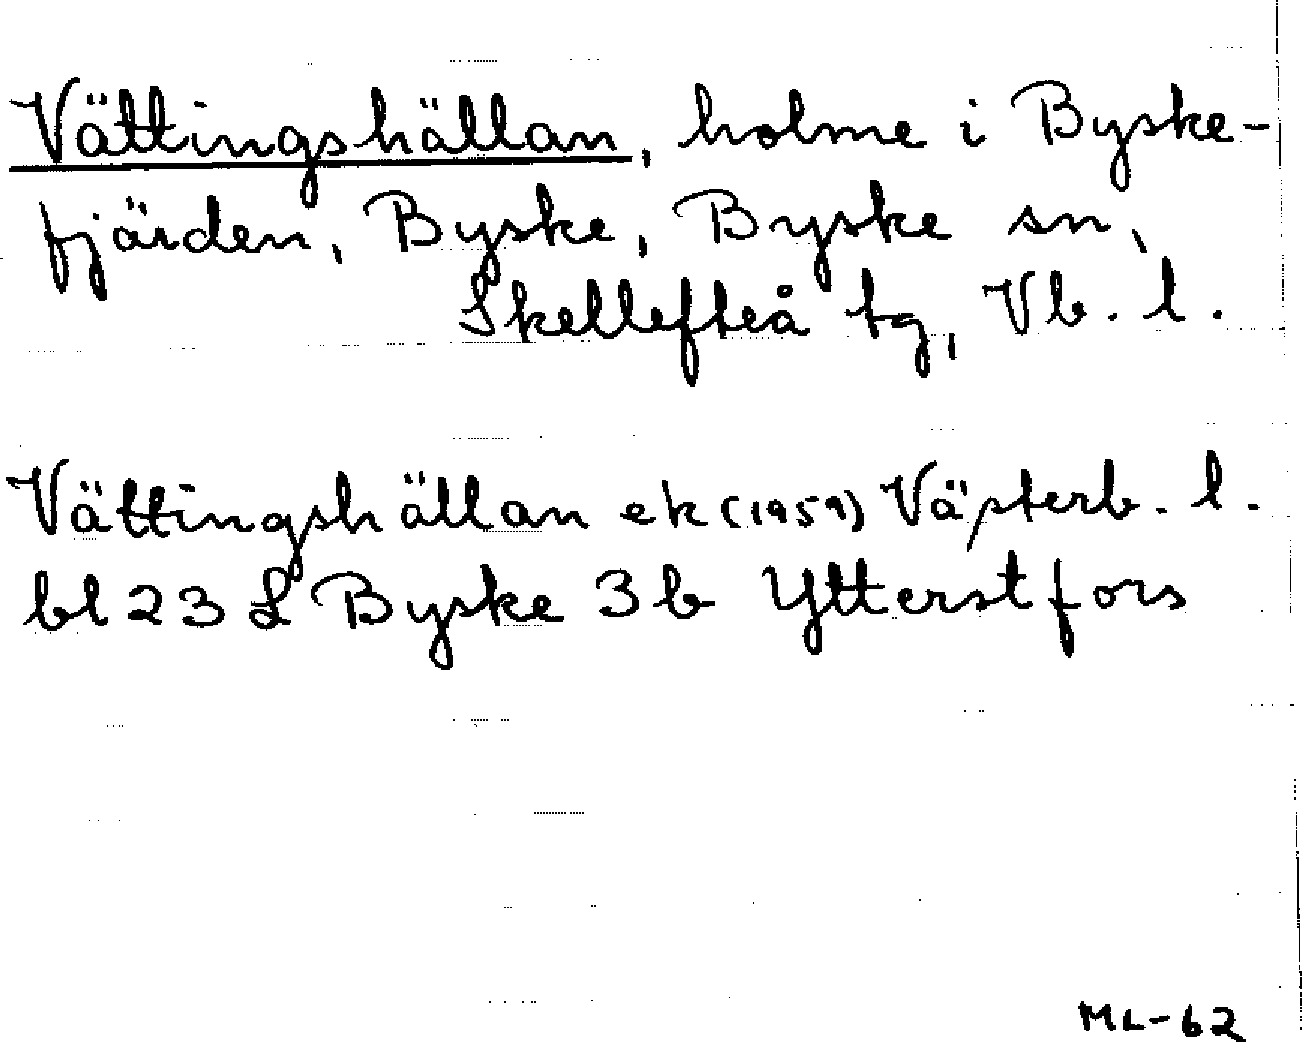 Vättingshällan, holme i Byske-
fjärden, Byske, Byske sn,
Skellefteå tg, Vb. l.
Vättingshällan ek (1959) Västerb. l.
bl 23 L Byske 3 b Ytterstfors
ML-62